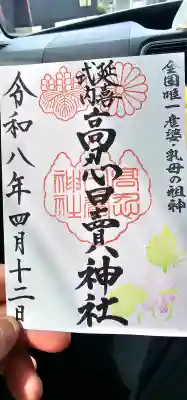 全国唯一産婆・乳母の祖神
延喜式内
高忍日賣神社
令和八年四月十二日